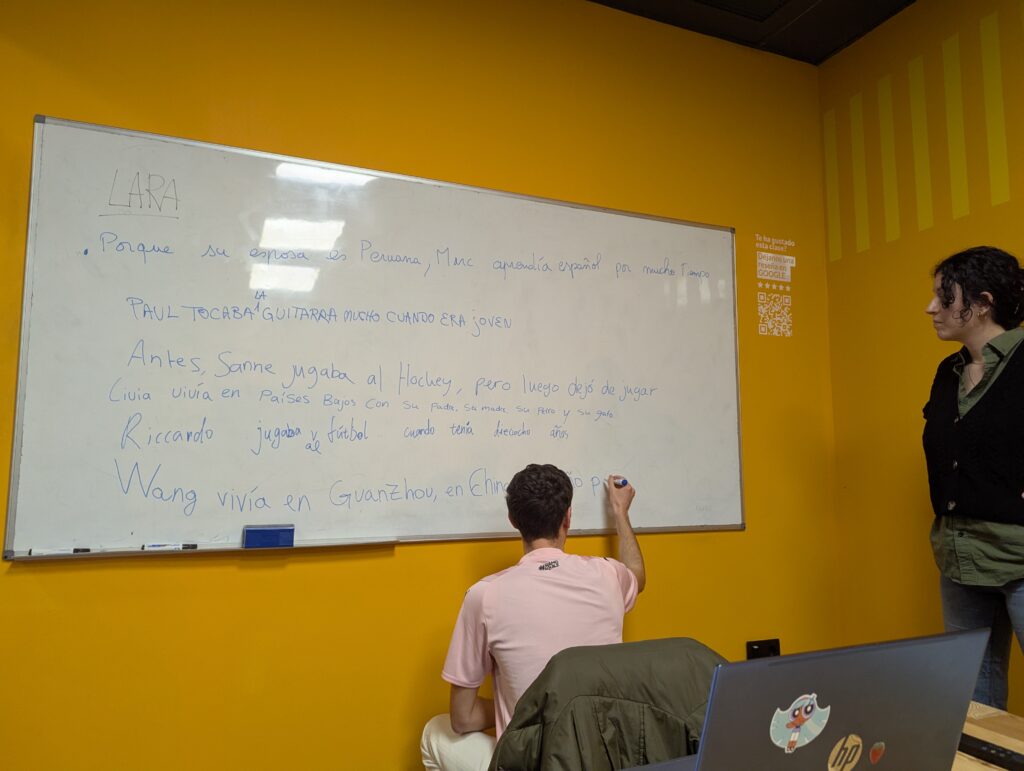 LARA
. Porque su esposa es Peruana, Marc aprendía español por mucho Tiempo
LA
PAUL TOCABA GUITARRA MUCHO CUANDO ERA jOVEN
Antes, Sanne jugaba al Hockey, pero luego dejó de jugar
Livia vivía en Países Bajos con su padre, su madre, su perro y su gato
Riccardo jugaba fútbol cuando tenía dieciocho años
al
Wang vivía en GuanZhou, en China
Te ha gustado
esta clase?
Déjanos una
reseña en
GOOGLE
hp